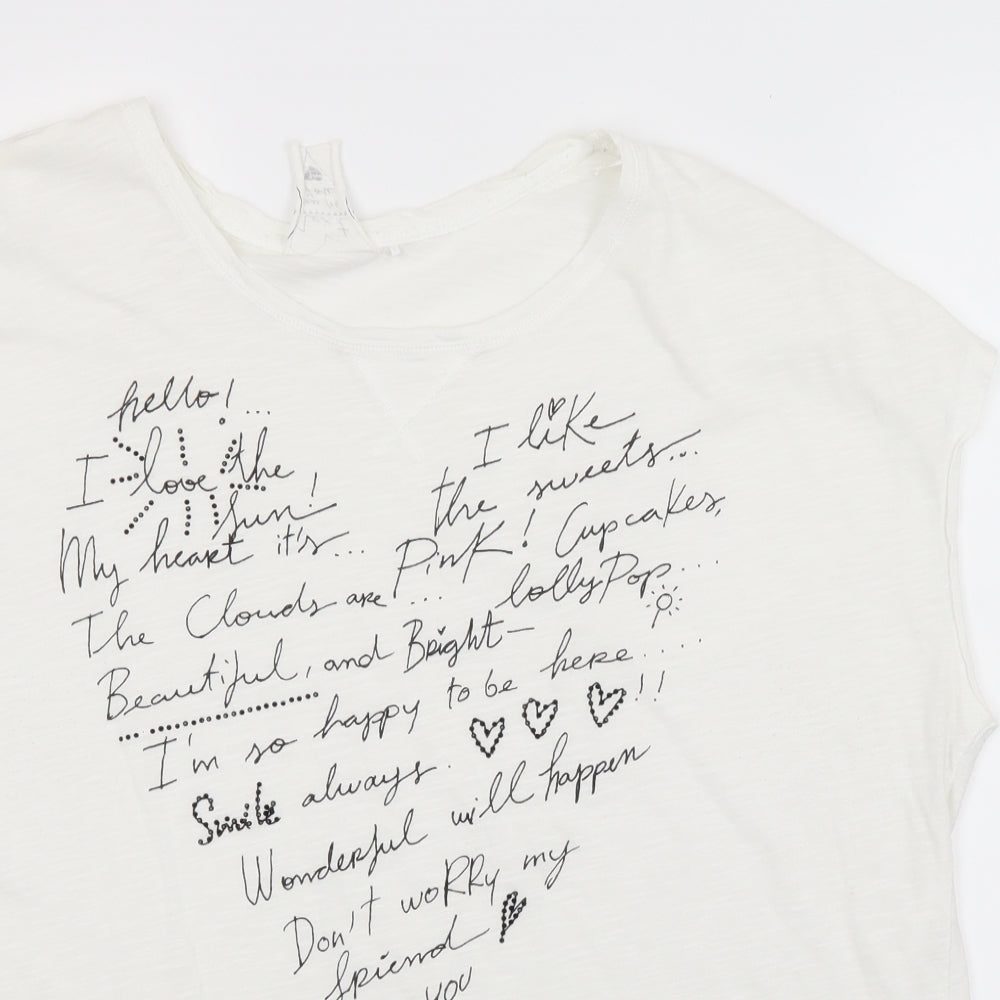 hello!...
I love the
sun!
My heart it's...
I like
the sweets...
Pink! Cupcakes,
The Clouds are ... lollyPop....
Beautiful, and Bright—
I'm so happy to be here....
Smile always. !!
Wonderful will happen
Don't woRRy my
friend
you